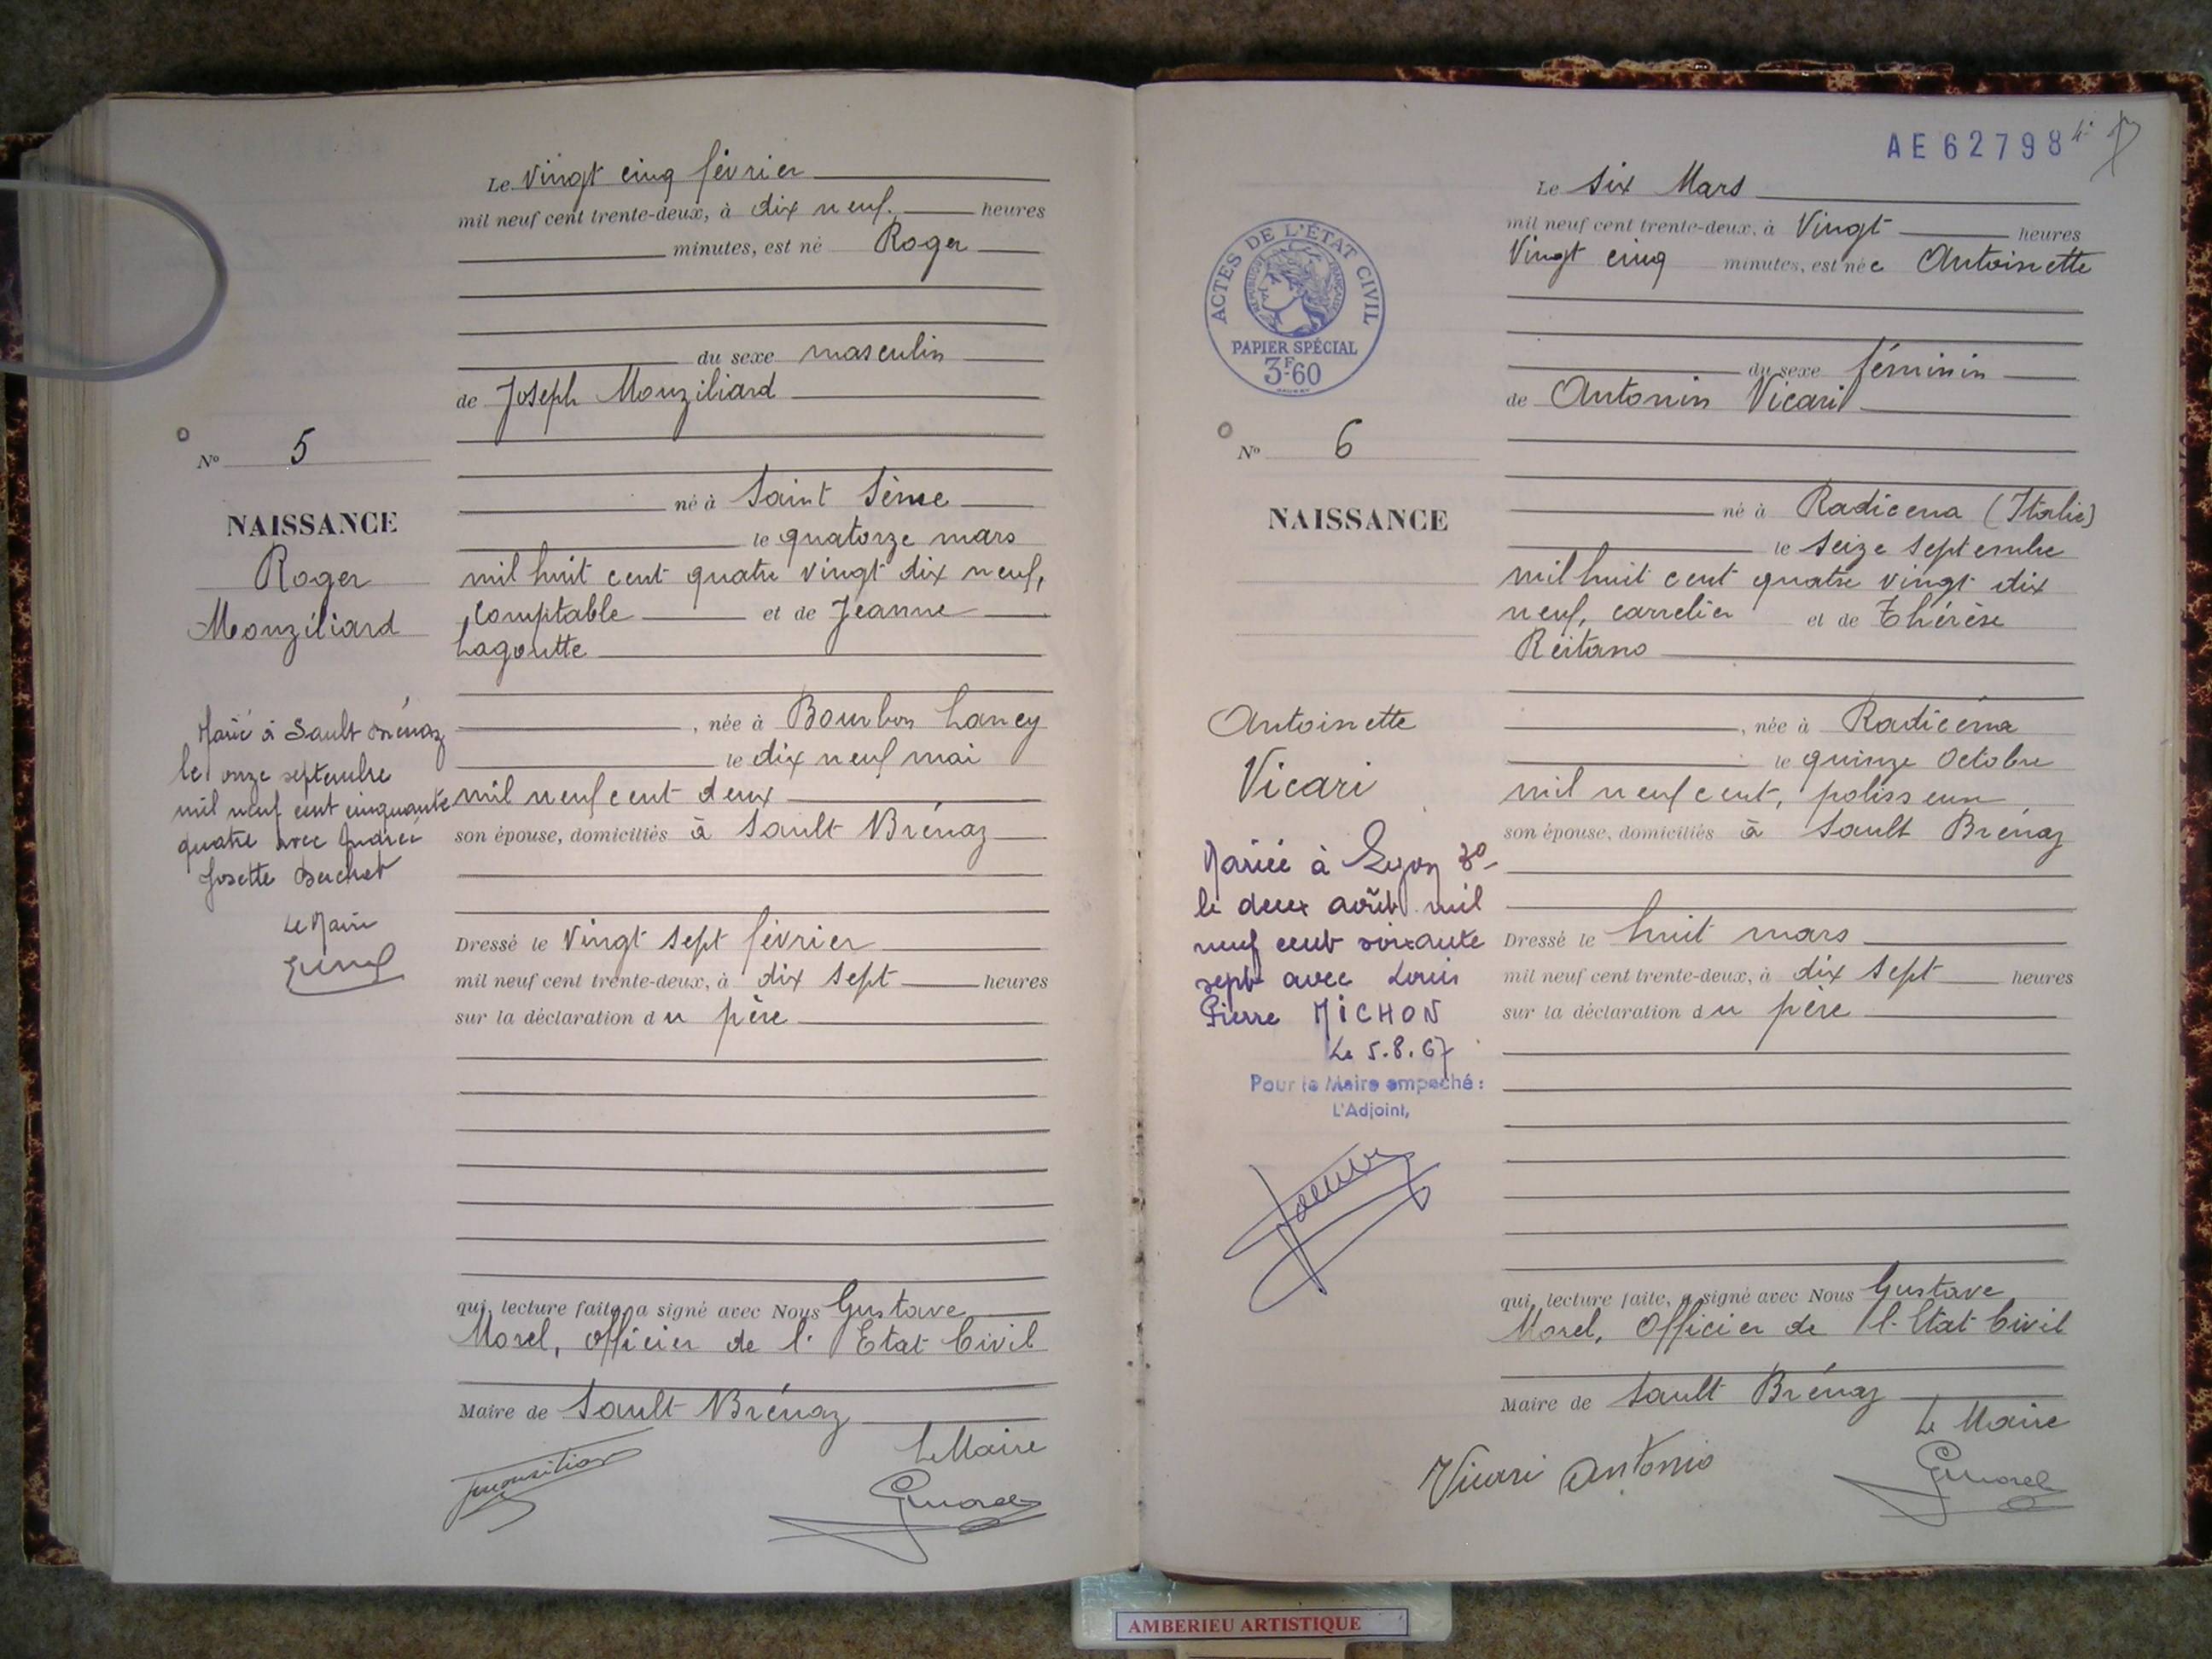 Le vingt cinq février
mil neuf cent trente-deux, à dix neuf heures
minutes, est né Roger
du sexe masculin
de Joseph Monziliard
né à Saint Sème
le quatorze mars
mil huit cent quatre vingt dix neuf,
comptable et de Jeanne
Lagoutte
, née à Bourbon Lancy
le dix neuf mai
mil neuf cent deux
son épouse, domiciliés à Sault Brénaz
Dressé le vingt sept février
mil neuf cent trente-deux, à dix sept heures
sur la déclaration du père
qui, lecture faite, a signé avec Nous Gustave
Morel, Officier de l'Etat Civil
Maire de Sault Brénaz
Le Maire
GMorel
No 5
NAISSANCE
Roger
Monziliard
Marié à Sault Brénaz
le onze septembre
mil neuf cent cinquante
quatre avec Andrée
Josette
Le Maire
AE 62798
Le six Mars
mil neuf cent trente-deux, à Vingt heures
Vingt cinq minutes, est née Antoinette
du sexe féminin
de Antonin Vicari
né à Radicena (Italie)
le seize septembre
mil huit cent quatre vingt dix
neuf, carrelier et de Thérèse
Reitano
, née à Radicéna
le quinze Octobre
mil neuf cent, polisseur
son épouse, domiciliés à Sault Brénaz
Dressé le huit mars
mil neuf cent trente-deux, à dix sept heures
sur la déclaration du père
qui, lecture faite, a signé avec Nous Gustave
Morel, Officier de l'Etat Civil
Maire de Sault Brénaz
Le Maire
Vicari Antonio
GMorel
ACTES DE L'ÉTAT CIVIL
RÉPUBLIQUE FRANÇAISE
PAPIER SPÉCIAL
3F60
No 6
NAISSANCE
Antoinette
Vicari
Mariée à Lyon
le deux août mil
neuf cent soixante
sept avec Louis
Pierre MICHON
Le 5.8.67
Pour le Maire empeché :
L'Adjoint,
AMBERIEU ARTISTIQUE